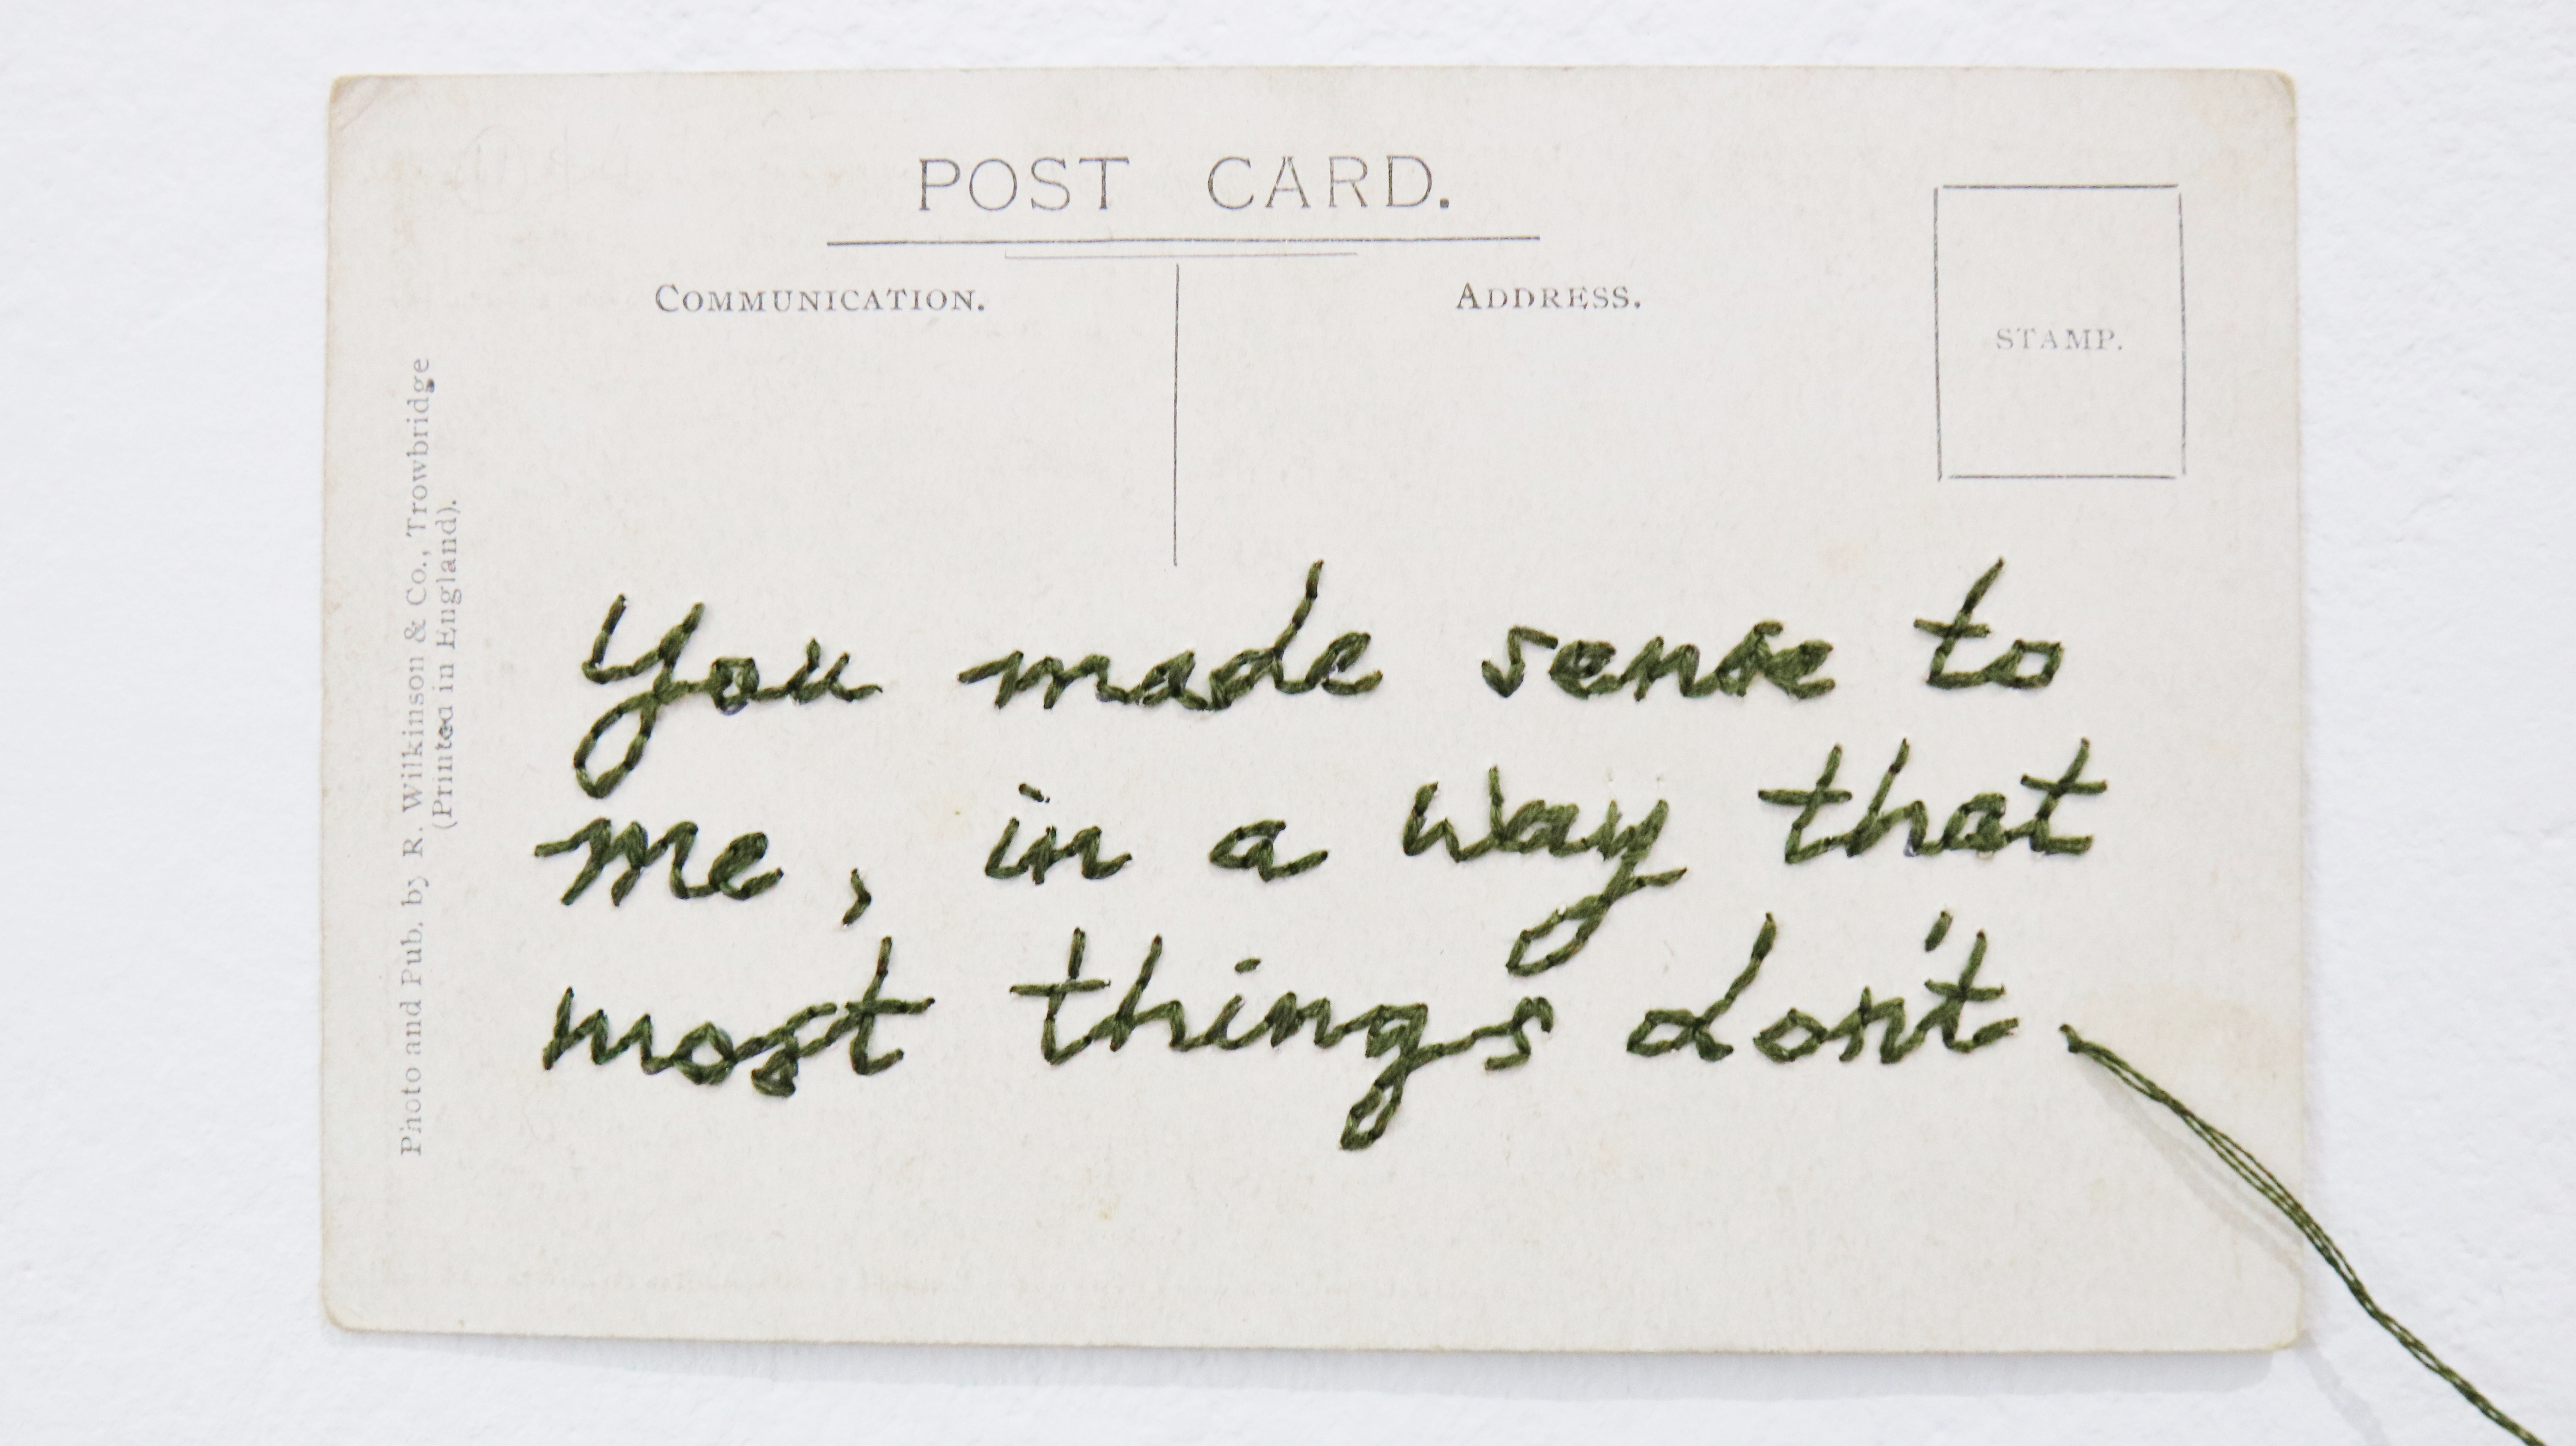 POST CARD.
COMMUNICATION.
ADDRESS.
STAMP.
Photo and Pub. by R. Wilkinson & Co., Trowbridge
(Printed in England).
You made sense to
me, in a way that
most things don't